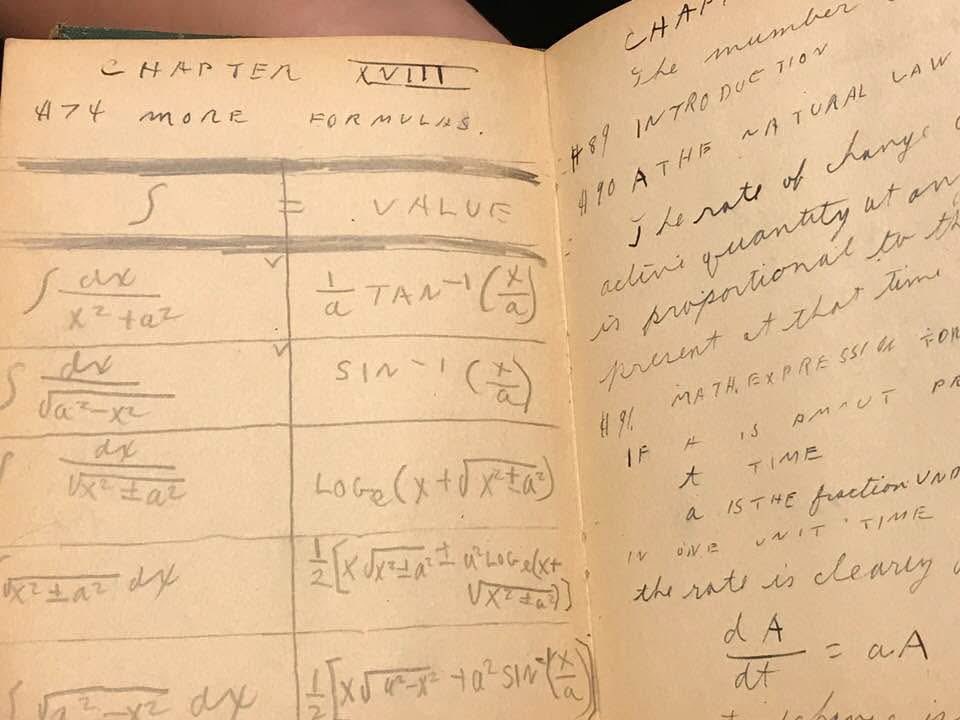 CHAPTER XVIII
#74 MORE FORMULAS.
∫ = VALUE
∫ dx/(x² + a²) 1/a TAN⁻¹ (x/a)
∫ dx/√(a² - x²) SIN⁻¹ (x/a)
∫ dx/√(x² ± a²) LOGe (x + √(x² ± a²))
√(x² ± a²) dx 1/2 [x√(x² ± a²) ± a² LOGe (x + √(x² ± a²))]
∫ √(a² - x²) dx 1/2 [x√(a² - x²) + a² SIN⁻¹ (x/a)]
The number
#89 INTRODUCTION
#90 A THE NATURAL LAW
The rate of change
active quantity at
is proportional to
present at that time
#91. MATH. EXPRESSION FOR
IF A IS AMOUT
t TIME
a IS THE fraction
IN ONE UNIT TIME
the rate is clearly
dA/dt = aA